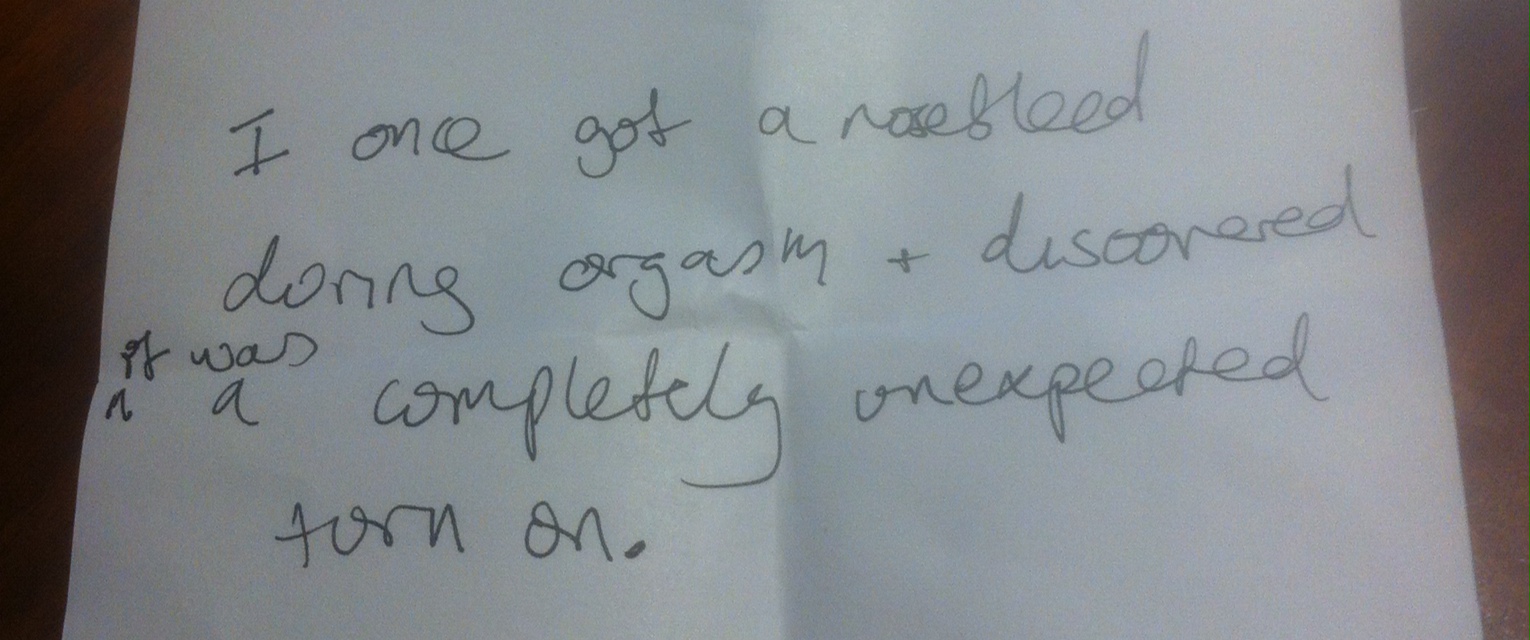 I once got a nosebleed
during orgasm + discovered
it was
^ a completely unexpected
turn on.